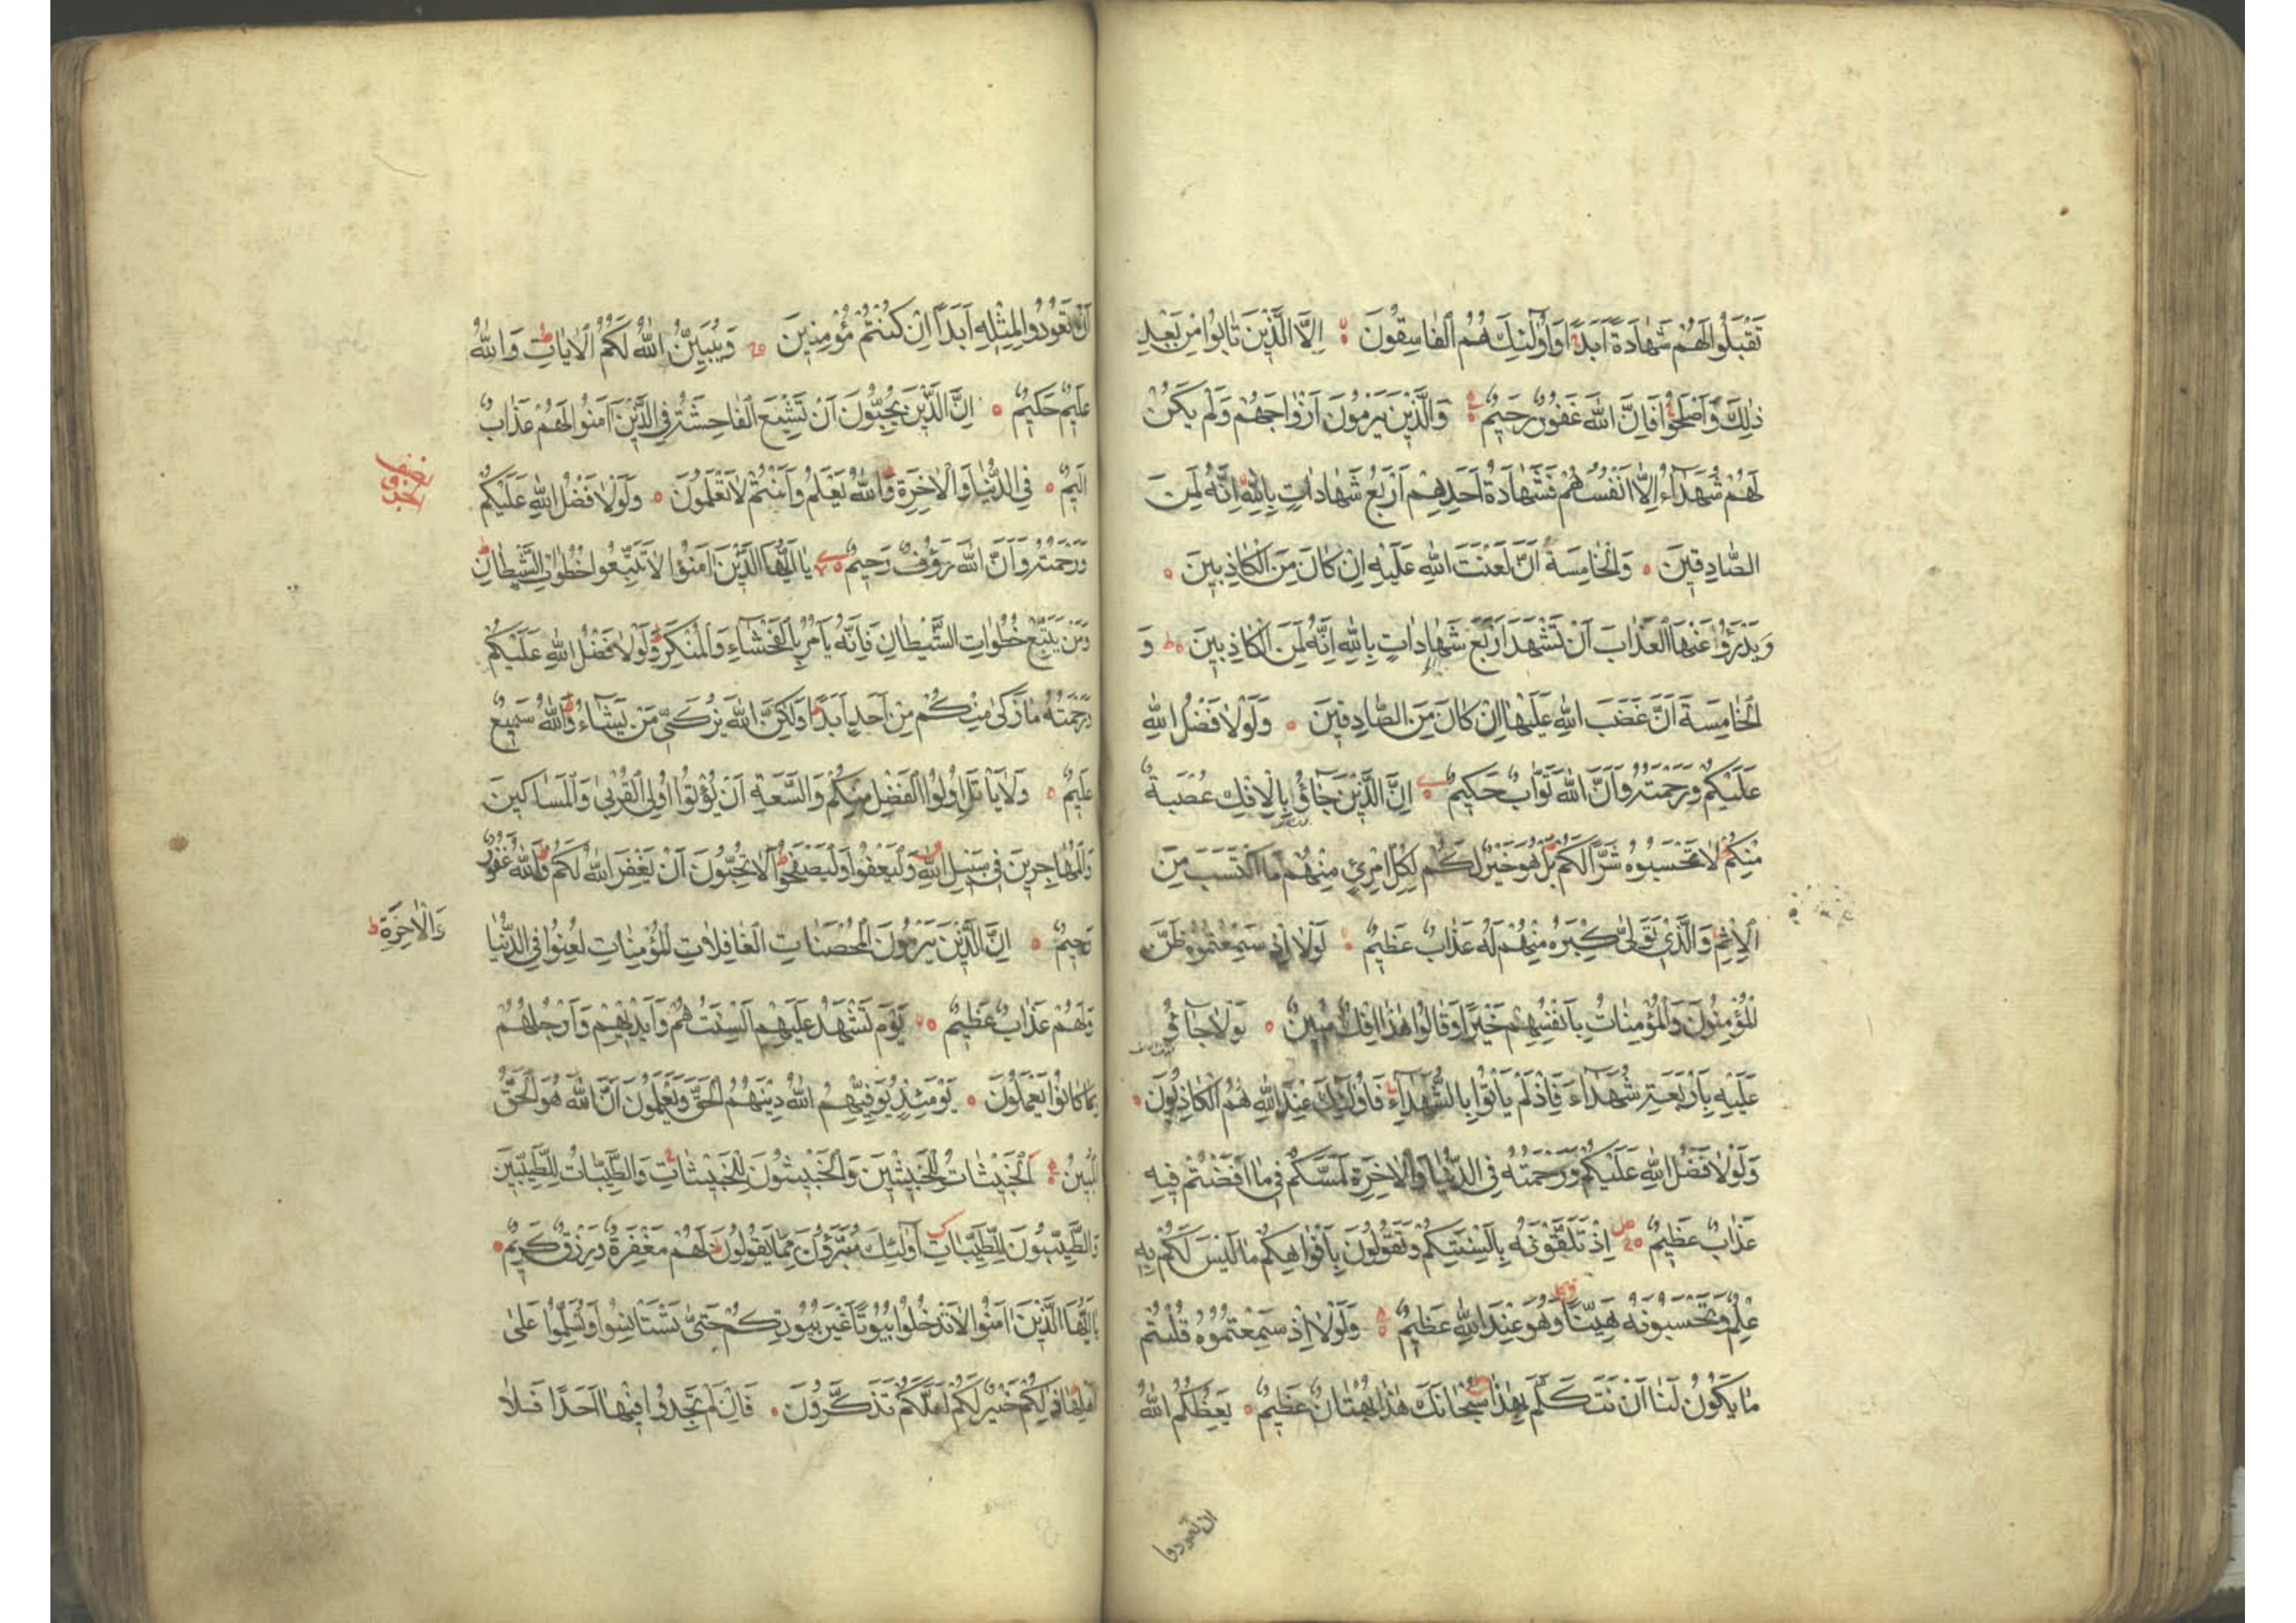 تَقْبَلُوا لَهُمْ شَهَادَةً اَبَدًا وَاُولٰئِكَ هُمُ الْفَاسِقُونَ اِلَّا الَّذِينَ تَابُوا مِنْ بَعْدِ
ذٰلِكَ وَاَصْلَحُوا فَاِنَّ اللّٰهَ غَفُورٌ رَحِيمٌ وَالَّذِينَ يَرْمُونَ اَزْوَاجَهُمْ وَلَمْ يَكُنْ
لَهُمْ شُهَدَآءُ اِلَّا اَنْفُسُهُمْ فَشَهَادَةُ اَحَدِهِمْ اَرْبَعُ شَهَادَاتٍ بِاللّٰهِ اِنَّهُ لَمِنَ
الصَّادِقِينَ وَالْخَامِسَةُ اَنَّ لَعْنَتَ اللّٰهِ عَلَيْهِ اِنْ كَانَ مِنَ الْكَاذِبِينَ
وَيَدْرَؤُا عَنْهَا الْعَذَابَ اَنْ تَشْهَدَ اَرْبَعَ شَهَادَاتٍ بِاللّٰهِ اِنَّهُ لَمِنَ الْكَاذِبِينَ وَ
الْخَامِسَةَ اَنَّ غَضَبَ اللّٰهِ عَلَيْهَا اِنْ كَانَ مِنَ الصَّادِقِينَ وَلَوْلَا فَضْلُ اللّٰهِ
عَلَيْكُمْ وَرَحْمَتُهُ وَاَنَّ اللّٰهَ تَوَّابٌ حَكِيمٌ اِنَّ الَّذِينَ جَآؤُ بِالْاِفْكِ عُصْبَةٌ
مِنْكُمْ لَا تَحْسَبُوهُ شَرًّا لَكُمْ بَلْ هُوَ خَيْرٌ لَكُمْ لِكُلِّ امْرِئٍ مِنْهُمْ مَا اكْتَسَبَ مِنَ
الْاِثْمِ وَالَّذِي تَوَلّٰى كِبْرَهُ مِنْهُمْ لَهُ عَذَابٌ عَظِيمٌ لَوْلَا اِذْ سَمِعْتُمُوهُ ظَنَّ
الْمُؤْمِنُونَ وَالْمُؤْمِنَاتُ بِاَنْفُسِهِمْ خَيْرًا وَقَالُوا هٰذَا اِفْكٌ مُبِينٌ لَوْلَا جَآؤُ
عَلَيْهِ بِاَرْبَعَةِ شُهَدَآءَ فَاِذْ لَمْ يَاْتُوا بِالشُّهَدَآءِ فَاُولٰئِكَ عِنْدَ اللّٰهِ هُمُ الْكَاذِبُونَ
وَلَوْلَا فَضْلُ اللّٰهِ عَلَيْكُمْ وَرَحْمَتُهُ فِي الدُّنْيَا وَالْاٰخِرَةِ لَمَسَّكُمْ فِي مَا اَفَضْتُمْ فِيهِ
عَذَابٌ عَظِيمٌ اِذْ تَلَقَّوْنَهُ بِاَلْسِنَتِكُمْ وَتَقُولُونَ بِاَفْوَاهِكُمْ مَا لَيْسَ لَكُمْ بِهِ
عِلْمٌ وَتَحْسَبُونَهُ هَيِّنًا وَهُوَ عِنْدَ اللّٰهِ عَظِيمٌ وَلَوْلَا اِذْ سَمِعْتُمُوهُ قُلْتُمْ
مَا يَكُونُ لَنَا اَنْ نَتَكَلَّمَ بِهٰذَا سُبْحَانَكَ هٰذَا بُهْتَانٌ عَظِيمٌ يَعِظُكُمُ اللّٰهُ
ان تعودوا
اَنْ تَعُودُوا لِمِثْلِهِ اَبَدًا اِنْ كُنْتُمْ مُؤْمِنِينَ وَيُبَيِّنُ اللّٰهُ لَكُمُ الْاٰيَاتِ وَاللّٰهُ
عَلِيمٌ حَكِيمٌ اِنَّ الَّذِينَ يُحِبُّونَ اَنْ تَشِيعَ الْفَاحِشَةُ فِي الَّذِينَ اٰمَنُوا لَهُمْ عَذَابٌ
اَلِيمٌ فِي الدُّنْيَا وَالْاٰخِرَةِ وَاللّٰهُ يَعْلَمُ وَاَنْتُمْ لَا تَعْلَمُونَ وَلَوْلَا فَضْلُ اللّٰهِ عَلَيْكُمْ
وَرَحْمَتُهُ وَاَنَّ اللّٰهَ رَؤُفٌ رَحِيمٌ يَا اَيُّهَا الَّذِينَ اٰمَنُوا لَا تَتَّبِعُوا خُطُوَاتِ الشَّيْطَانِ
وَمَنْ يَتَّبِعْ خُطُوَاتِ الشَّيْطَانِ فَاِنَّهُ يَاْمُرُ بِالْفَحْشَآءِ وَالْمُنْكَرِ وَلَوْلَا فَضْلُ اللّٰهِ عَلَيْكُمْ
وَرَحْمَتُهُ مَا زَكٰى مِنْكُمْ مِنْ اَحَدٍ اَبَدًا وَلٰكِنَّ اللّٰهَ يُزَكِّي مَنْ يَشَآءُ وَاللّٰهُ سَمِيعٌ
عَلِيمٌ وَلَا يَاْتَلِ اُولُوا الْفَضْلِ مِنْكُمْ وَالسَّعَةِ اَنْ يُؤْتُوا اُولِي الْقُرْبٰى وَالْمَسَاكِينَ
وَالْمُهَاجِرِينَ فِي سَبِيلِ اللّٰهِ وَلْيَعْفُوا وَلْيَصْفَحُوا اَلَا تُحِبُّونَ اَنْ يَغْفِرَ اللّٰهُ لَكُمْ وَاللّٰهُ غَفُورٌ
رَحِيمٌ اِنَّ الَّذِينَ يَرْمُونَ الْمُحْصَنَاتِ الْغَافِلَاتِ الْمُؤْمِنَاتِ لُعِنُوا فِي الدُّنْيَا
وَالْاٰخِرَةِ
وَلَهُمْ عَذَابٌ عَظِيمٌ يَوْمَ تَشْهَدُ عَلَيْهِمْ اَلْسِنَتُهُمْ وَاَيْدِيهِمْ وَاَرْجُلُهُمْ
بِمَا كَانُوا يَعْمَلُونَ يَوْمَئِذٍ يُوَفِّيهِمُ اللّٰهُ دِينَهُمُ الْحَقَّ وَيَعْلَمُونَ اَنَّ اللّٰهَ هُوَ الْحَقُّ
الْمُبِينُ اَلْخَبِيثَاتُ لِلْخَبِيثِينَ وَالْخَبِيثُونَ لِلْخَبِيثَاتِ وَالطَّيِّبَاتُ لِلطَّيِّبِينَ
وَالطَّيِّبُونَ لِلطَّيِّبَاتِ اُولٰئِكَ مُبَرَّؤُنَ مِمَّا يَقُولُونَ لَهُمْ مَغْفِرَةٌ وَرِزْقٌ كَرِيمٌ
يَا اَيُّهَا الَّذِينَ اٰمَنُوا لَا تَدْخُلُوا بُيُوتًا غَيْرَ بُيُوتِكُمْ حَتّٰى تَسْتَاْنِسُوا وَتُسَلِّمُوا عَلٰى
اَهْلِهَا ذٰلِكُمْ خَيْرٌ لَكُمْ لَعَلَّكُمْ تَذَكَّرُونَ فَاِنْ لَمْ تَجِدُوا فِيهَا اَحَدًا فَلَا